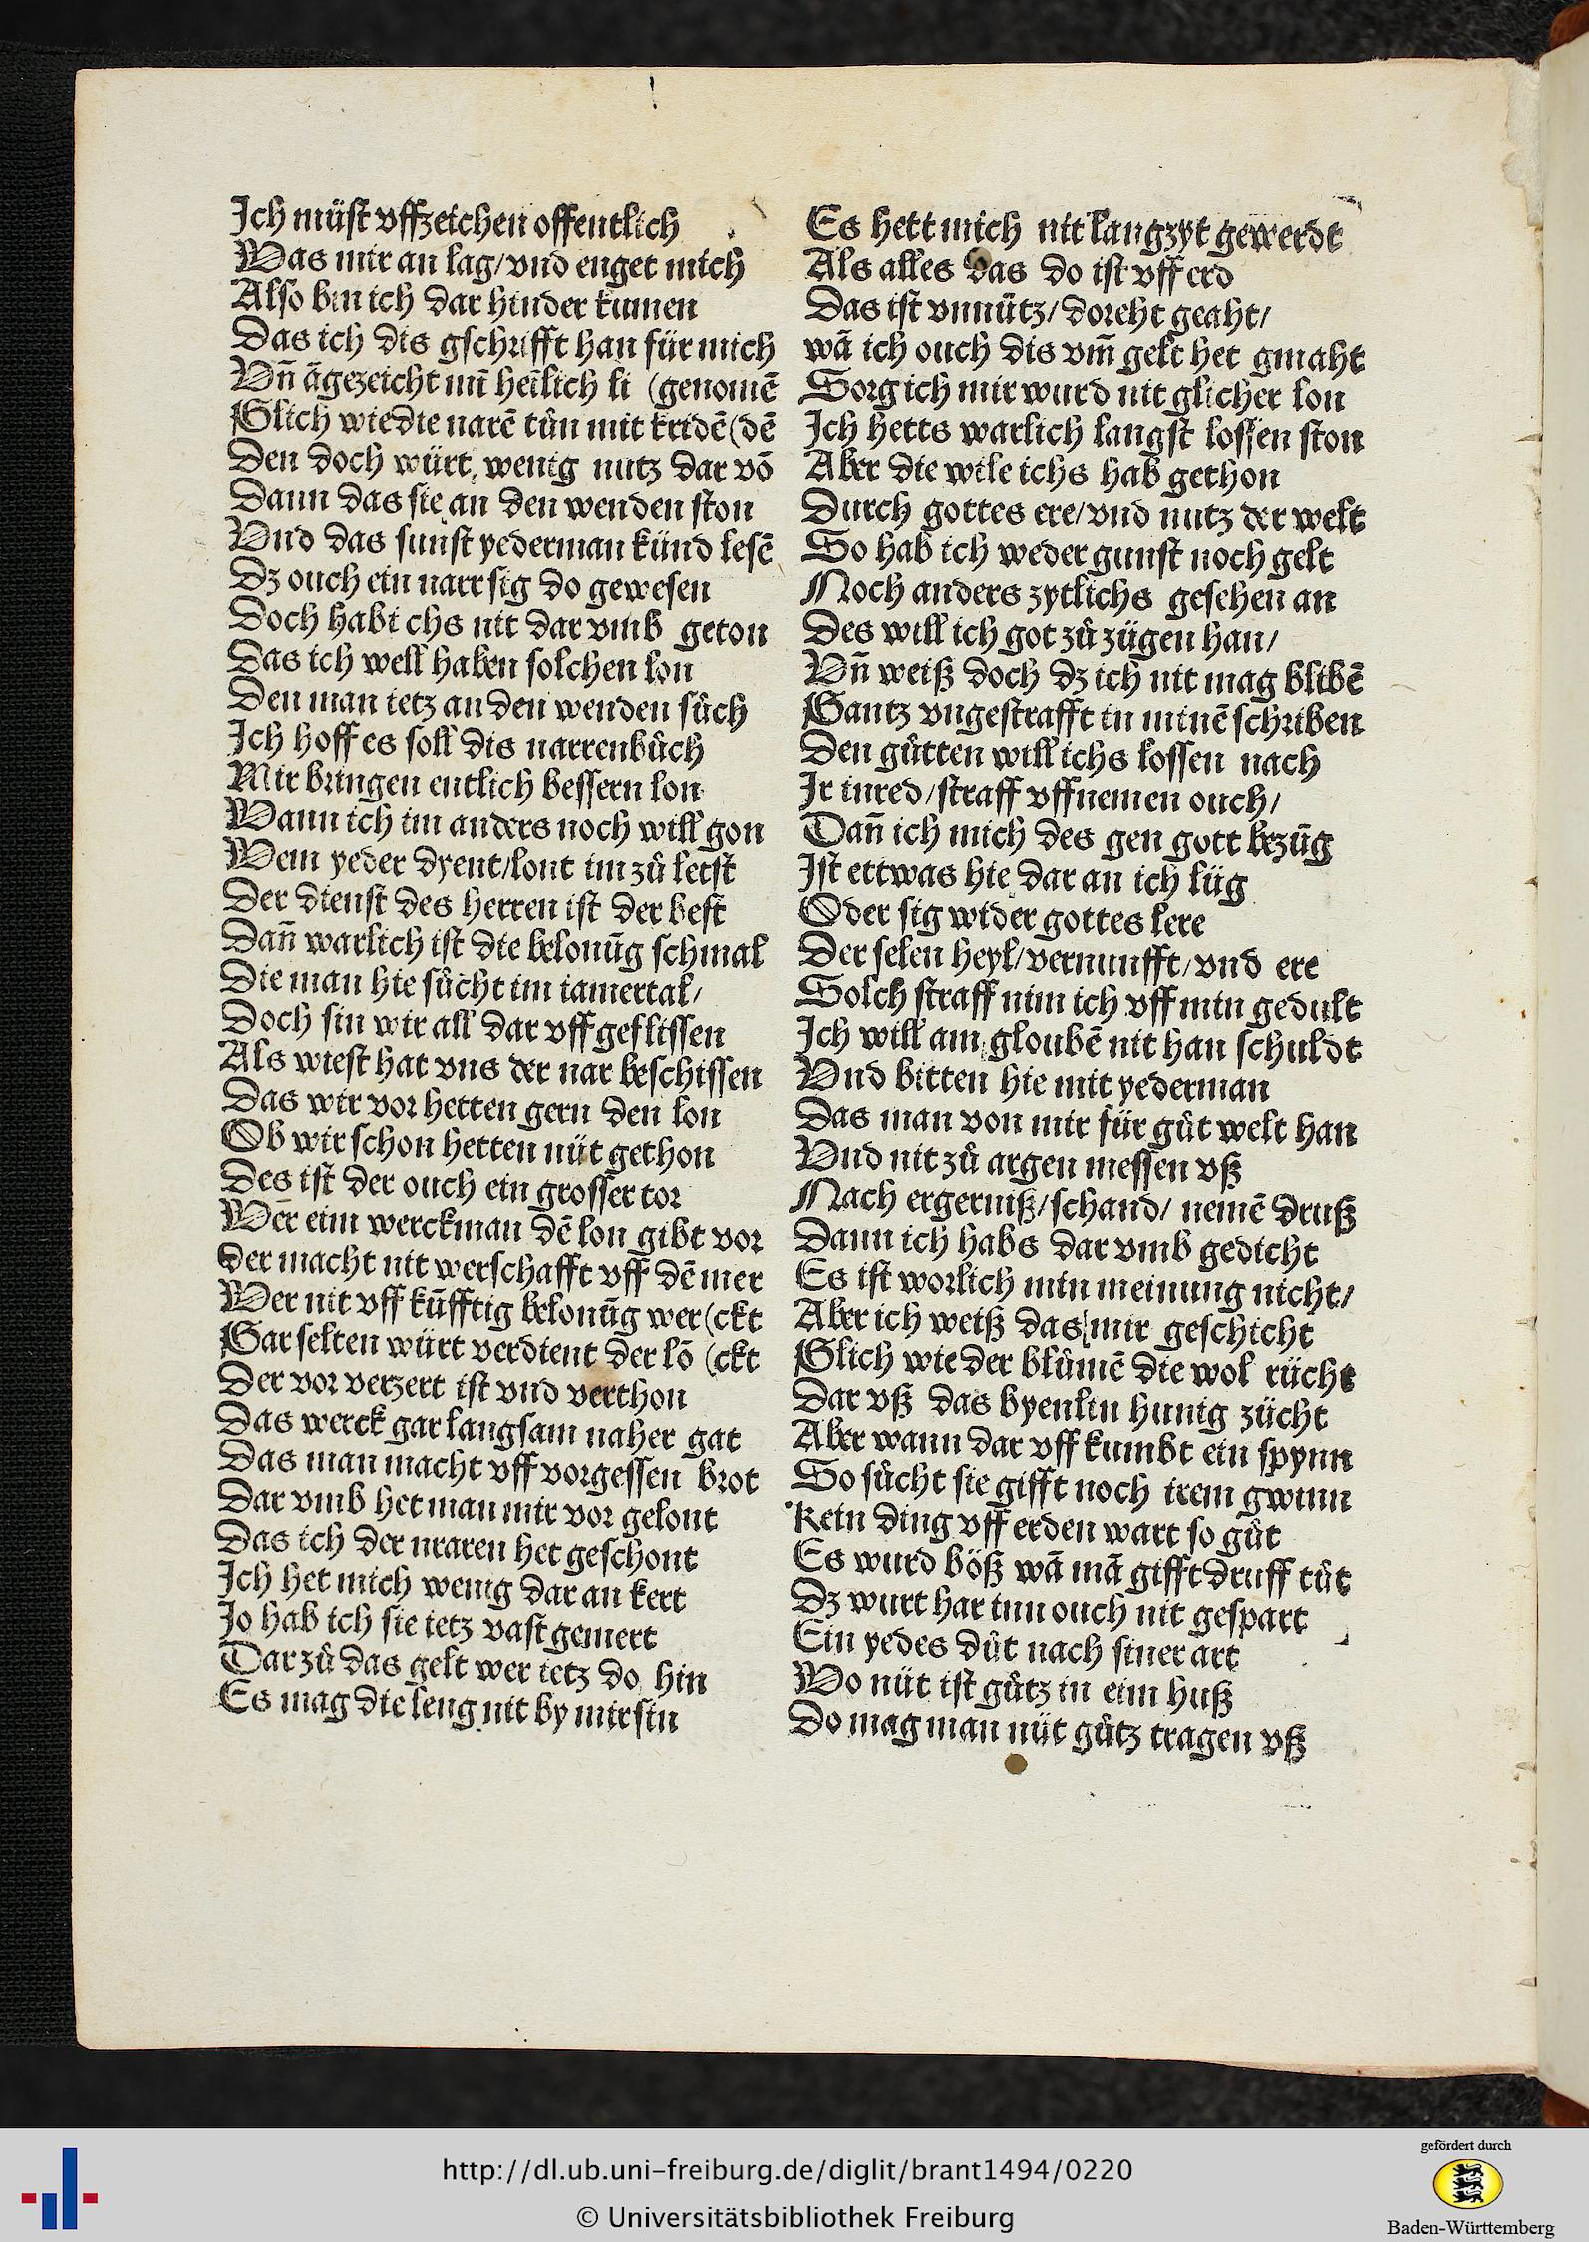 Ich müst vffzeichen offentlich
Was mir an lag/vnd enget mich
Also bin ich dar hinder kumen
Das ich dis gschrifft han für mich
Vn̄ āgezeicht mī heīlich li (genomē
Glich wie die narē tůn mit kridē (dē
Den doch würt wenig nutz dar vō
Dann das sie an den wenden ston
Vnd das sunst yederman künd lesē
Dz ouch ein narr sig do gewesen
Doch habi chs nit dar vmb geton
Das ich well haben solchen lon
Den man ietz an den wenden sůch
Ich hoff es soll dis narrenbůch
Mir bringen entlich bessern lon
Wann ich im anders noch will gon
Wem yeder dyent/lont im zů letst
Der dienst des herren ist der best
Dan̄ warlich ist die belonūg schmal
Die man hie sůcht im iamertal/
Doch sin wir all dar vff geflissen
Als wiest hat vns der nar beschissen
Das wir vor hetten gern den lon
Ob wir schon hetten nüt gethon
Des ist der ouch ein grosser tor
Wer eim werckman dē lon gibt vor
Der macht nit werschafft vff dē mer
Wer nit vff kūfftig belonūg wer (ckt
Gar selten würt verdient der lō (ckt
Der vor verzert ist vnd verthon
Das werck gar langsam naher gat
Das man macht vff vorgessen brot
Dar vmb het man mir vor gelont
Das ich der nraren het geschont
Ich het mich wenig dar an kert
Jo hab ich sie ietz vast gemert
Dar zů das gelt wer ietz do hin
Es mag die leng nit by mir sin
Es hett mich nit lang zyt gewerdt
Als alles das do ist vff erd
Das ist vnnütz/doreht geaht/
wā ich ouch dis vm̄ gelt het gmaht
Sorg ich mir wurd nit glicher lon
Ich hetts warlich langst lossen ston
Aber die wile ichs hab gethon
Durch gottes ere/vnd nutz der welt
So hab ich weder gunst noch gelt
Noch anders zytlichs gesehen an
Des will ich got zů zügen han/
Vn̄ weiß doch dz ich nit mag blibē
Gantz vngestrafft in minē schriben
Den gůtten will ichs lossen nach
Ir inred/straff vffnemen ouch/
Dan̄ ich mich des gen gott bezüg
Ist ettwas hie dar an ich lüg
Oder sig wider gottes lere
Der selen heyl/vernunfft/vnd ere
Solch straff nim ich vff min gedult
Ich will am gloubē nit han schuldt
Vnd bitten hie mit yederman
Das man von mir für gůt welt han
Vnd nit zů argen messen vß
Nach ergerniß/schand/ nemē druß
Dann ich habs dar vmb gedicht
Es ist worlich min meinung nicht/
Aber ich weiß das mir geschicht
Glich wie der blůmē die wol rücht
Dar vß das byenlin hunig zücht
Aber wann dar vff kumbt ein spynn
So sůcht sie gifft noch irem gwinn
Kein ding vff erden wart so gůt
Es wurd böß wā mā gifft druff tůt
Dz wurt har inn ouch nit gespart
Ein yedes důt nach siner art
Wo nüt ist gůtz in eim huß
Do mag man nüt gůtz tragen vß
http://dl.ub.uni-freiburg.de/diglit/brant1494/0220
© Universitätsbibliothek Freiburg
gefördert durch
Baden-Württemberg